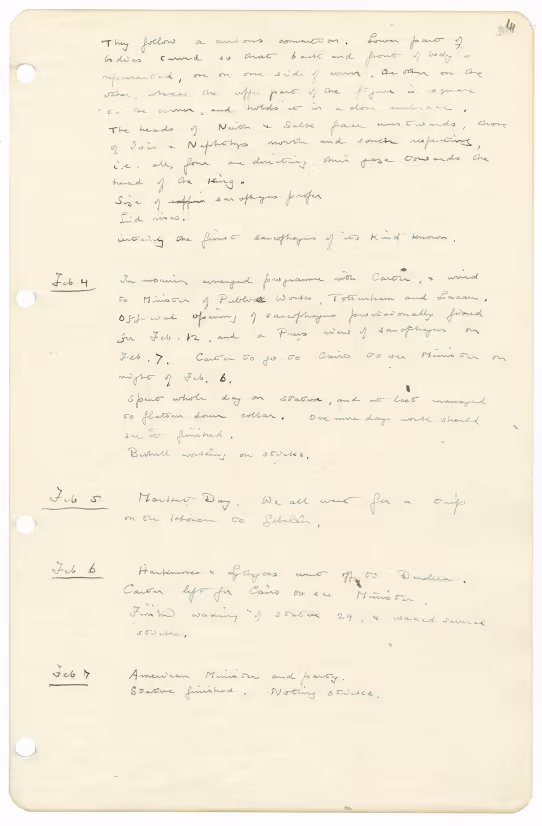 4
They follow a curious convention. Lower part of
bodies carved so that back and front of body is
represented, one on one side of corner, the other on the
other, whereas the upper part of the figure is square
to the corner, and holds it in a close embrace.
The heads of Neith & Selk face westwards, those
of Isis & Nephthys north and south respectively,
i.e. all four are directing their gaze towards the
head of the King.
Size of sarcophagus proper
Lid
Certainly the finest sarcophagus of its kind known.
Feb 4
In morning arranged programme with Carter, & wired
to Minister of Public Works, Tottenham and Lacau.
Official opening of sarcophagus provisionally fixed
for Feb. 12, and a Press view of sarcophagus on
Feb. 7. Carter to go to Cairo to see Minister on
night of Feb. 6.
Spent whole day on statue, and at last managed
to flatten down collar. One more days work should
see it finished.
Bethell working on sticks.
Feb 5
Market Day. We all went for a trip
on the to Gebelên.
Feb 6
Harknesses & Lythgoes went off to Dendera.
Carter left for Cairo to see Minister.
Finished waxing of statue 29, & waxed several
sticks.
Feb 7
American Minister and party.
Statue finished. Noting sticks.